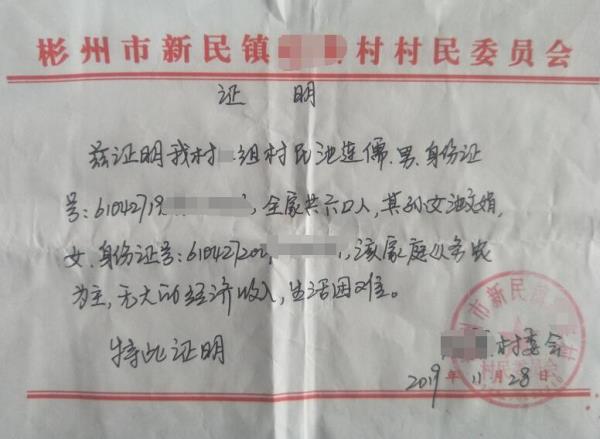 彬州市新民镇 村村民委员会
证 明
兹证明我村 组村民池莲儒,男,身份证
号:61042719 ,全家共六口人,其孙女池文娟,
女,身份证号:610427202 ,该家庭以务农
为主,无大的经济收入,生活困难。
特此证明
村委会
2019年11月28日
州市新民镇
村民委员会